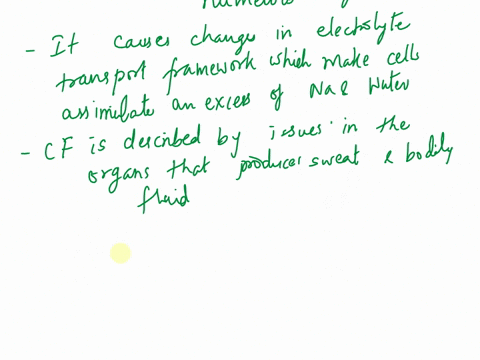 - It causes changes in electrolyte
transport framework which make cells
assimilate an excess of Na & Water
- CF is described by issues in the
organs that produces sweat & bodily
fluid